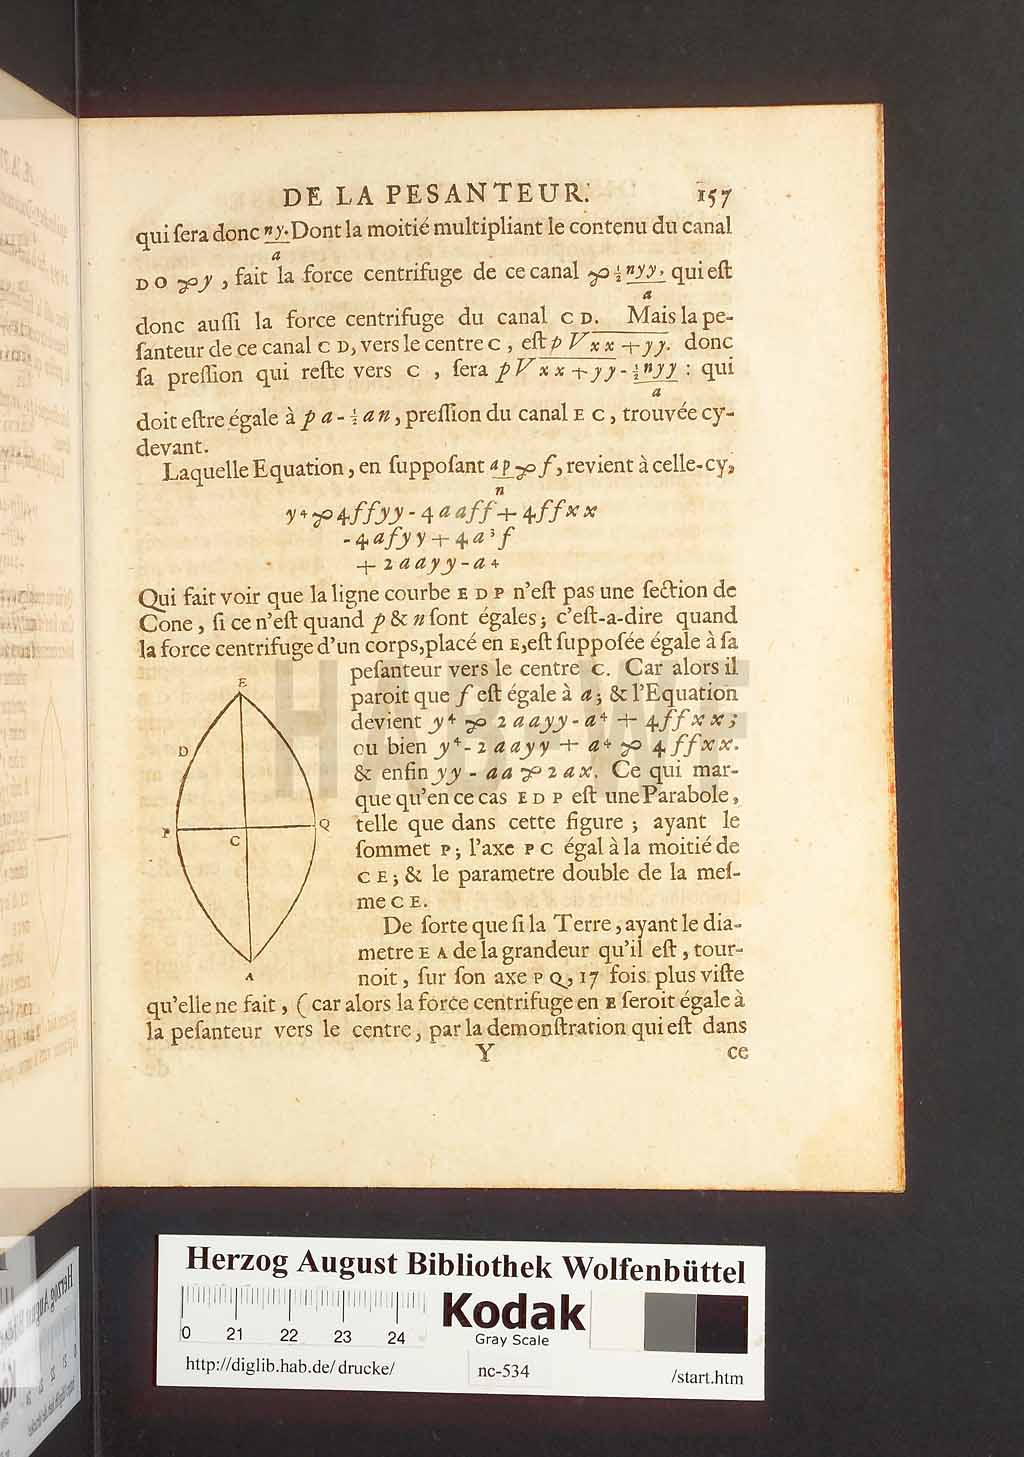 DE LA PESANTEUR. 157
qui ſera donc ny/a. Dont la moitié multipliant le contenu du canal
D O ∝ y, fait la force centrifuge de ce canal ∝ ½nyy/a, qui eſt
donc auſſi la force centrifuge du canal C D. Mais la pe-
ſanteur de ce canal C D, vers le centre C, eſt p √xx+yy. donc
ſa preſſion qui reſte vers C, ſera p√xx+yy - ½nyy/a : qui
doit eſtre égale à pa-½an, preſſion du canal E C, trouvée cy-
devant.
Laquelle Equation, en ſuppoſant ap/n ∝ f, revient à celle-cy,
y⁴ ∝ 4ffyy - 4aaff + 4ffxx
- 4afyy + 4a³f
+ 2aayy - a⁴
Qui fait voir que la ligne courbe E D P n'eſt pas une ſection de
Cone, ſi ce n'eſt quand p & n ſont égales; c'eſt-a-dire quand
la force centrifuge d'un corps, placé en E, eſt ſuppoſée égale à ſa
peſanteur vers le centre C. Car alors il
paroit que f eſt égale à a; & l'Equation
devient y⁴ ∝ 2aayy - a⁴ + 4ffxx;
ou bien y⁴ - 2aayy + a⁴ ∝ 4ffxx.
& enfin yy - aa ∝ 2ax. Ce qui mar-
que qu'en ce cas E D P eſt une Parabole,
telle que dans cette figure; ayant le
ſommet P; l'axe P C égal à la moitié de
C E; & le parametre double de la meſ-
me C E.
De ſorte que ſi la Terre, ayant le dia-
metre E A de la grandeur qu'il eſt, tour-
noit, ſur ſon axe P Q, 17 fois plus viſte
qu'elle ne fait, (car alors la force centrifuge en E ſeroit égale à
la peſanteur vers le centre, par la demonſtration qui eſt dans
Y ce
E
D
P C Q
A
HAB WF
Herzog August Bibliothek Wolfenbüttel
0 21 22 23 24
Kodak
Gray Scale
http://diglib.hab.de/drucke/ nc-534 /start.htm